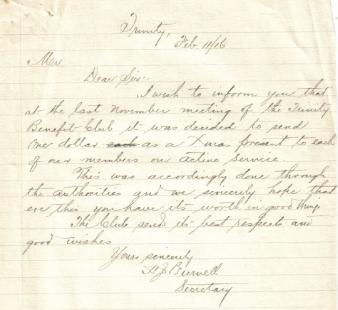 Trinity,
Feb. 11/16
Mr
Dear Sir:-
I wish to inform you that
at the last November meeting of the Trinity
Benefit Club it was decided to send
one dollar each as a Xmas present to each
of our members on Active Service.
This was accordingly done through
the authorities and we sincerely hope that
ere this you have its worth in good things
The Club send its best respects and
good wishes
Yours sincerely
Burwell
Secretary